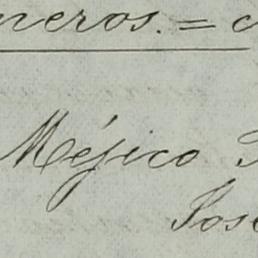 neros. =
Méjico
José